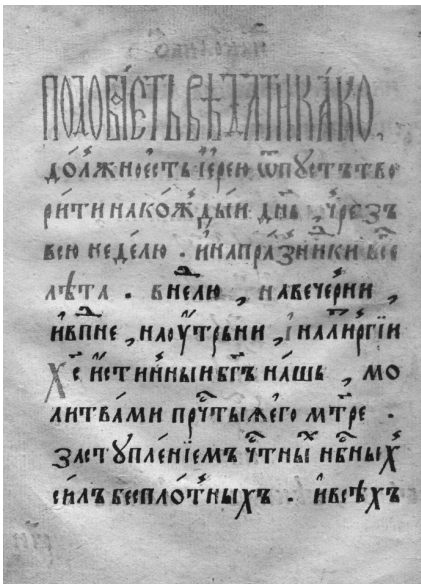 ПОДОБА́ЕТЬ ВѢДАТИ КА́КО,
до́лжно е́сть їерею ѿпустъ тво
ри́ти на ко́ждыи дн҃ь, чрезъ
всю неде́лю . и на пра́здники все
лѣта . в не҃лю , на вече́рни ,
и в пн҃е , на оу́трьни , і на ли҃ргїи
Х҃е и́стинныи бг҃ъ на́шь , мо
литва́ми пр҃чтыѧ его мт҃ре .
заступле́нїемъ ч҃тны н҃бныⷯ
си́лъ бесплотныхъ . и всѣхъ